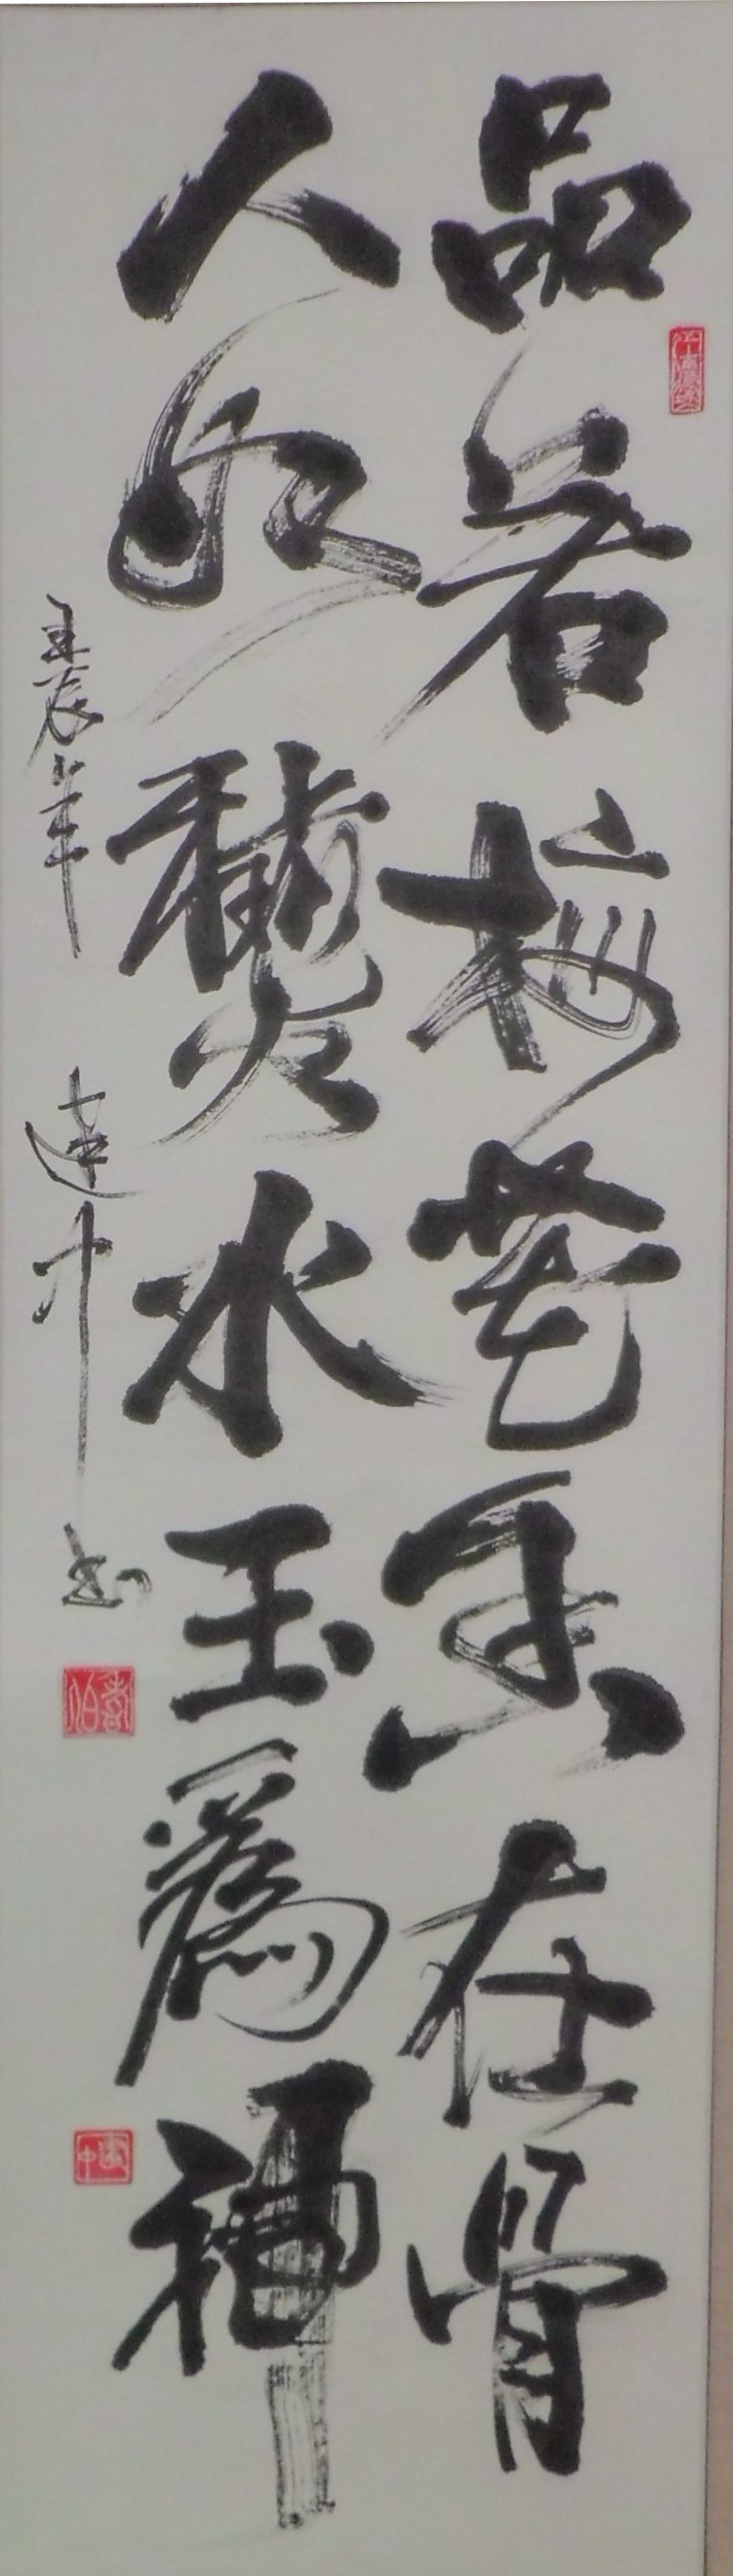 品若梅花香在骨
人如秋水玉為神
壬辰年 達中書